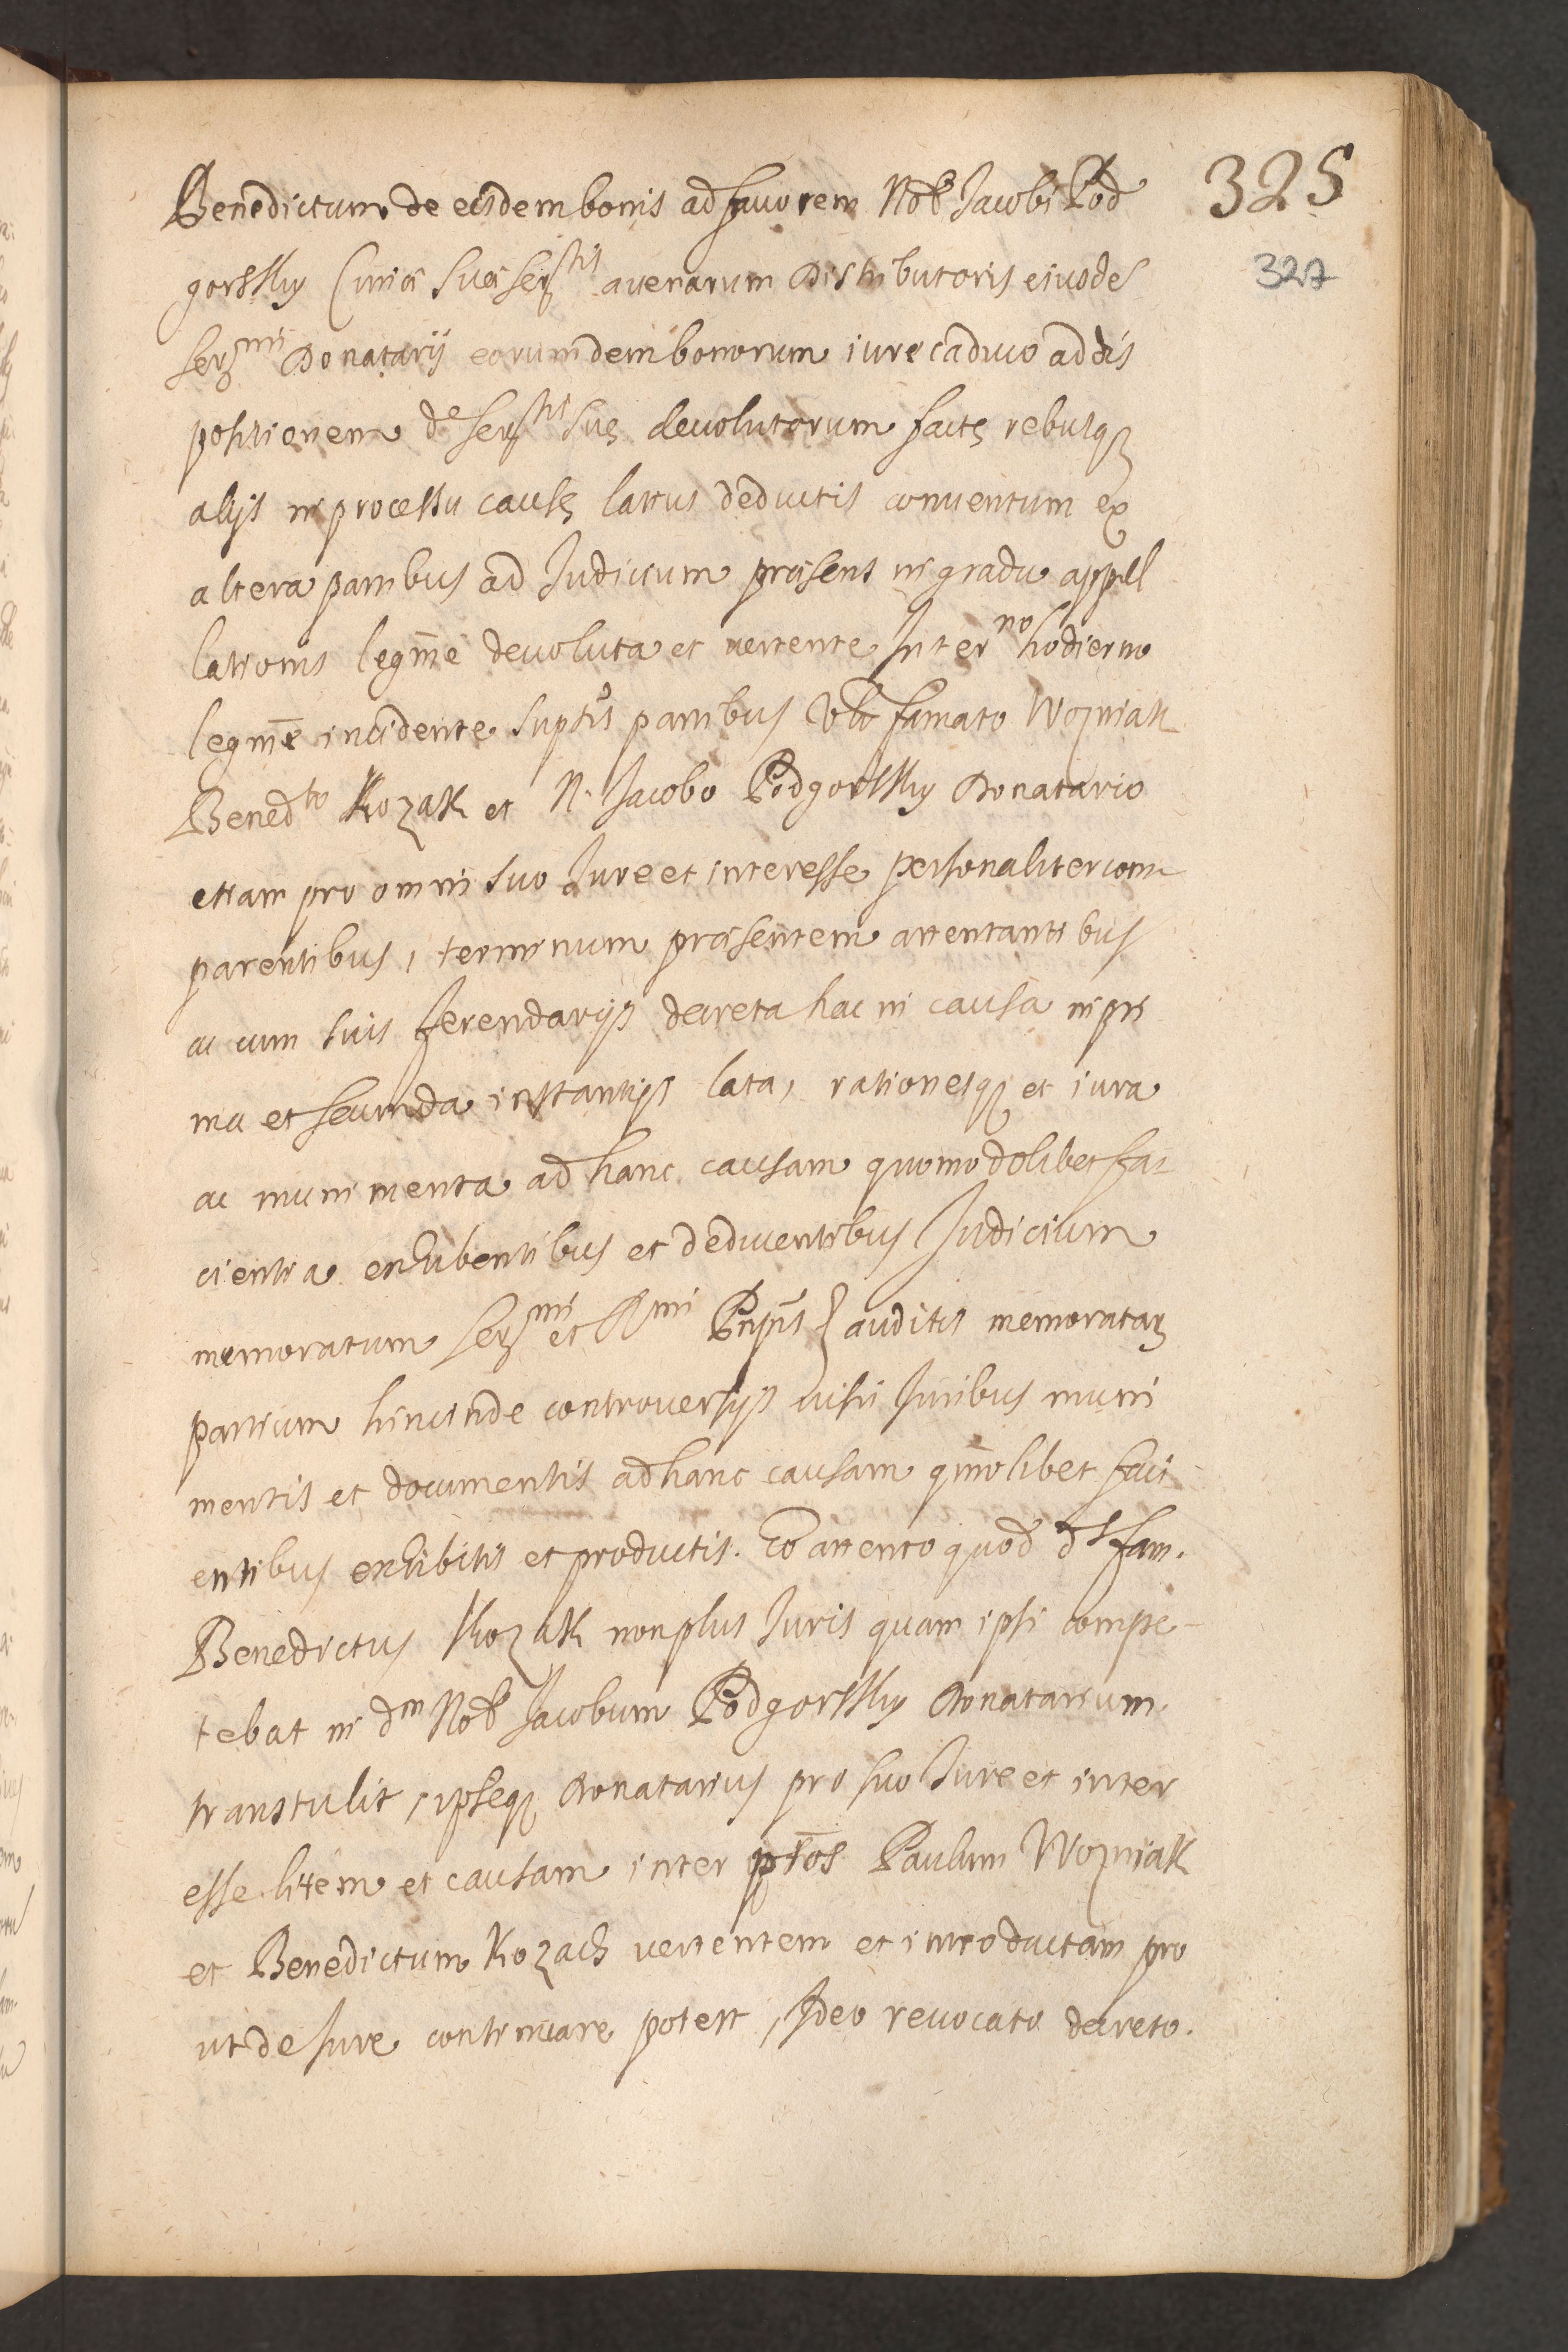 325
327
Benedictum de eisdem bonis ad favorem Nob Jacobi Pod
gorskky Curiæ Suæ Ser^tis avenarum Distributoris eiusde
Ser^mi Donatarij eorumdem bonorum iure caduco ad dis
positionem d^e Ser^tis suę devolutorum factę rebusq
alijs in processu causę latius deductis conventum ex
altera partibus ad Judicium præsens in gradu appel
lationis legm̄e devoluta et vertente Inter^no hodierno
legm̄e incidente supt̄is partibus Vti famato Wozniak
Bened^to Kozak et N. Jacobo Podgorskky Donatario
etiam pro omni suo Jure et interesse personaliter com
parentibus, terminum præsentem attentantibus
ac cum suis ferendarijs decreta hac in causa in pri
ma et secunda instantijs lata, rationesq et iura
ac munimenta ad hanc causam quomodolibet fa
cientia exhibentibus et deducentibus Judicium
memoratum Ser^mi et R^mi Pn̄pis auditis memoratar
partium hincinde controversijs visis Juribus muni
mentis et documentis ad hanc causam qm̄olibet faci
entibus exhibitis et productis. Eo attento quod d^s fam.
Benedictus Kozak non plus Juris quam ipsi compe-
tebat in d^m Nob Jacobum Podgorskky Donatarium
transtulit, ipseq Donatarius pro suo Jure et inter
esse litem et causam inter pt̄os Paulum Wozniak
et Benedictum Kozach vertentem et introductam pro
ut de Jure continuare potest, Ideo revocato decreto.